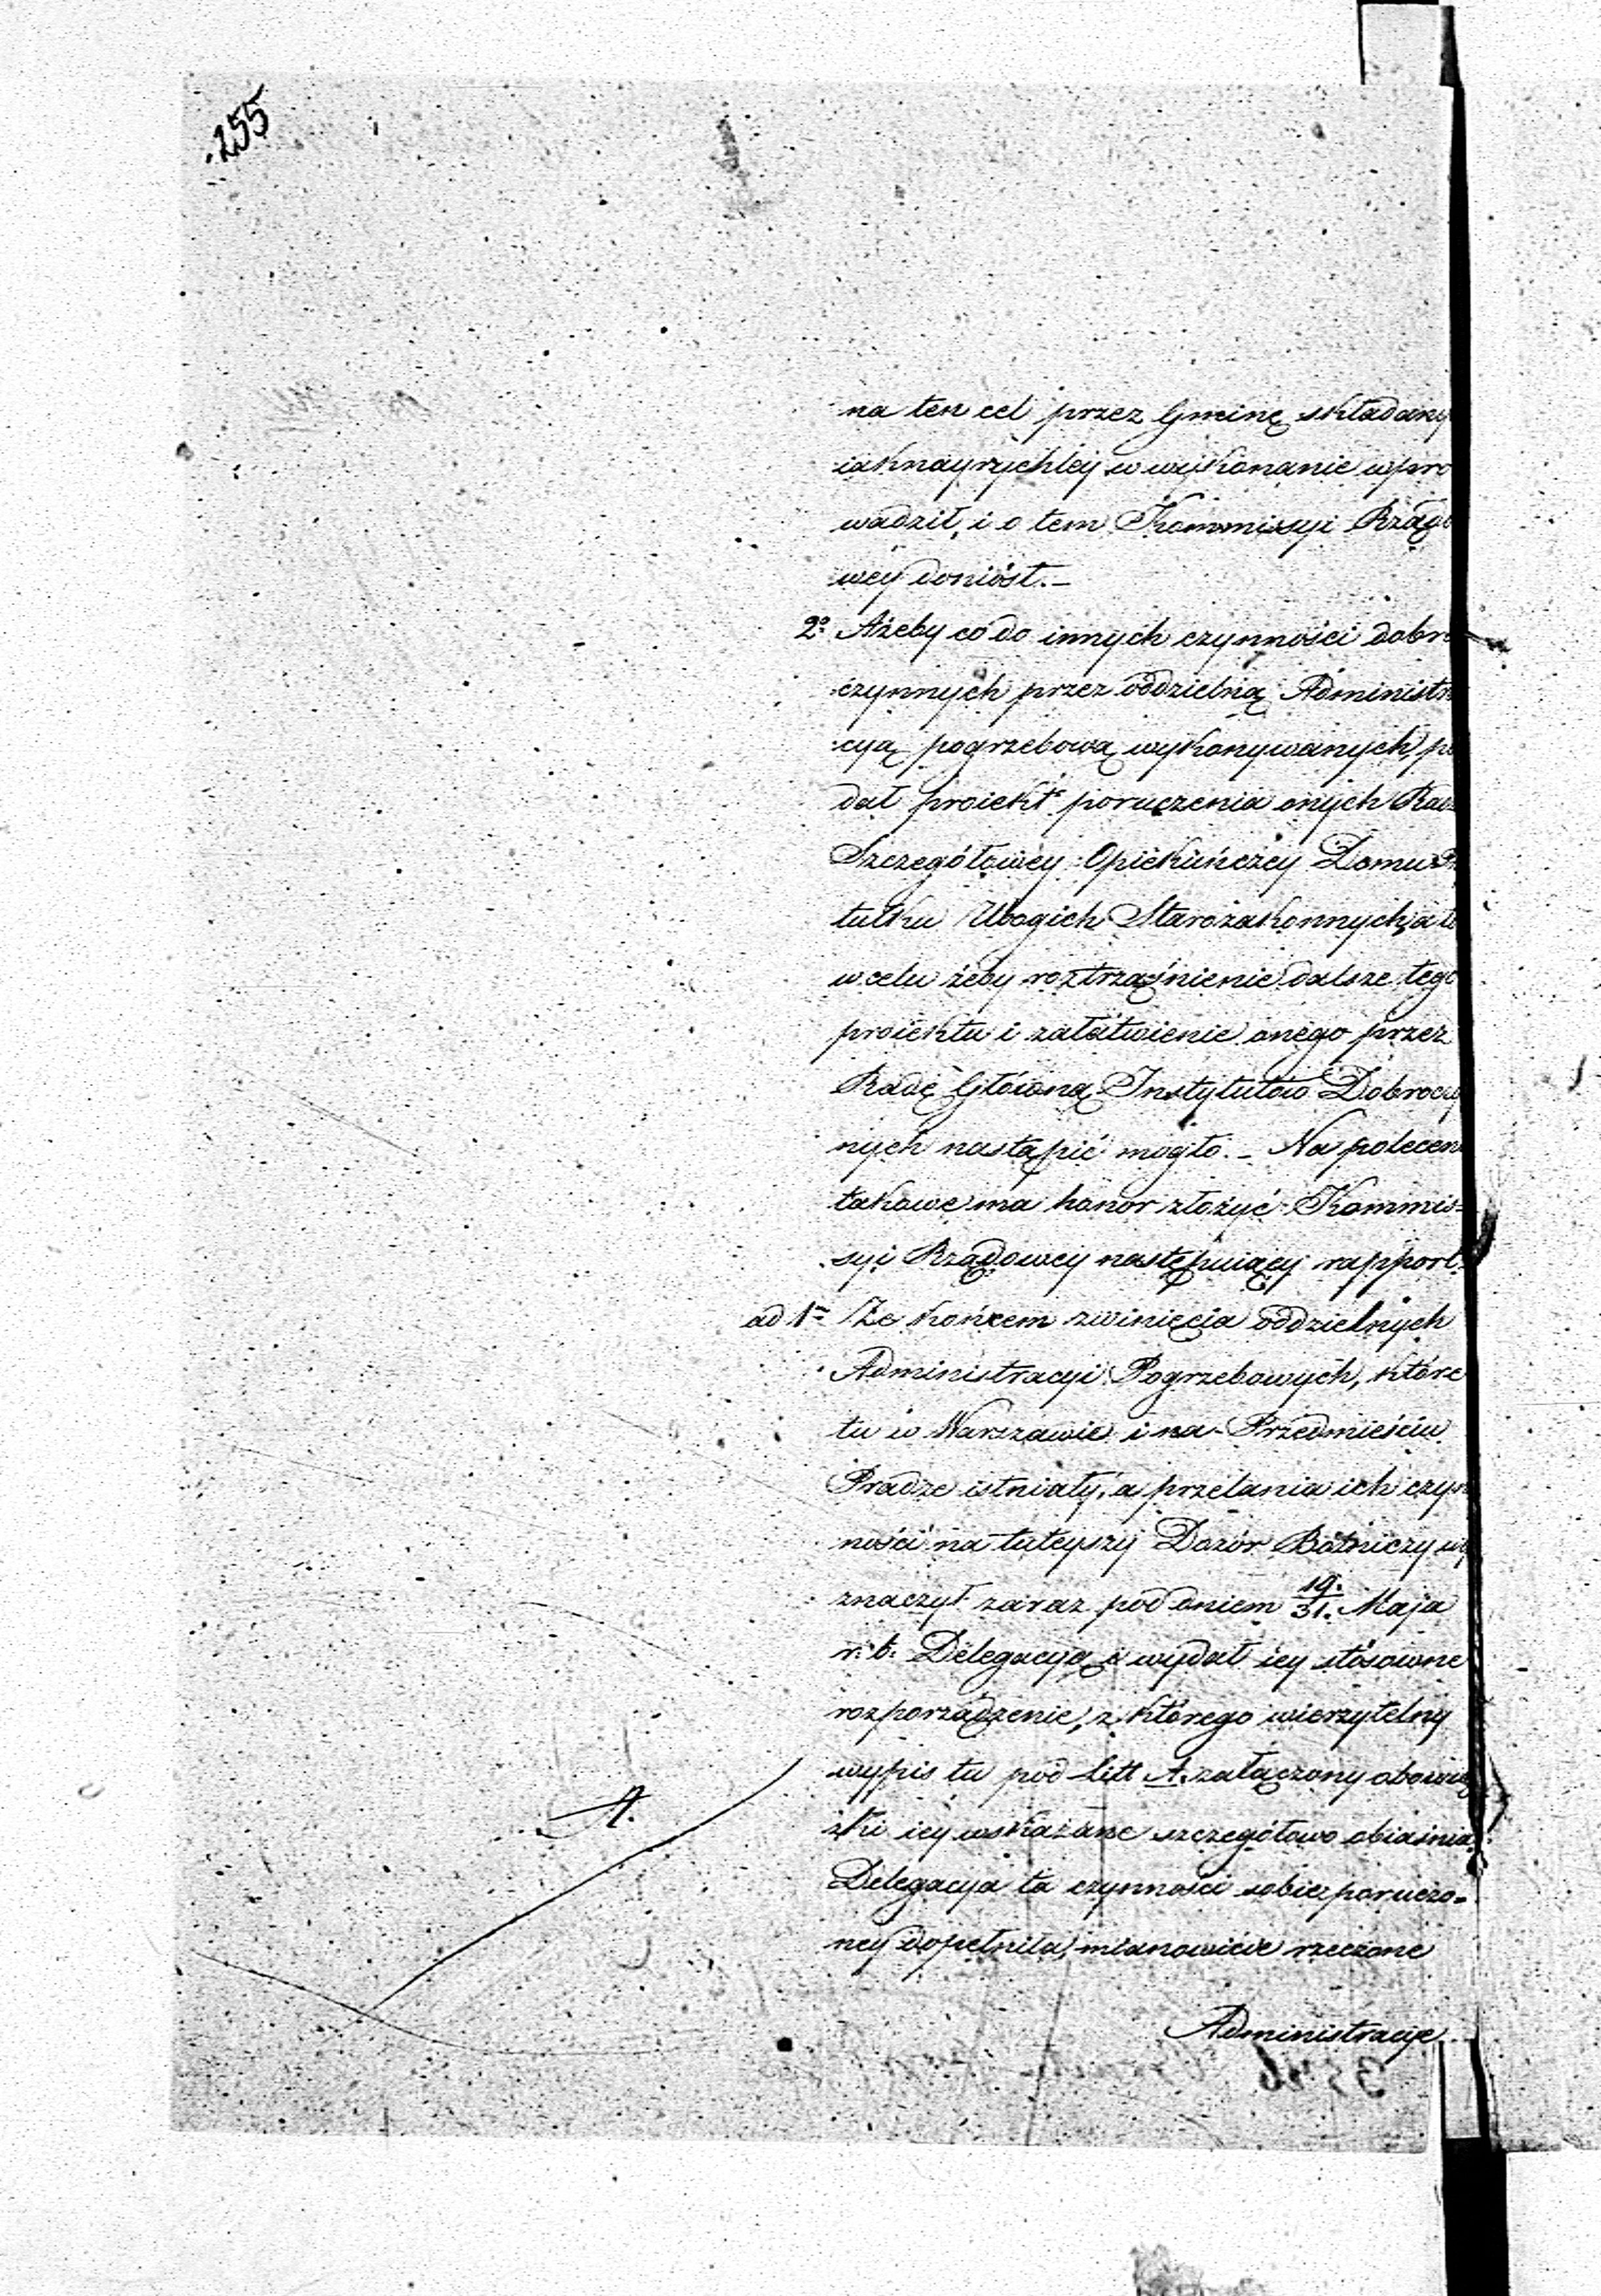 255
na ten cel przez Gminę składany
iaknayrychley w wykonanie wpro
wadził, i o tem Kommissyi Rządo
wey doniósł.–
2o Ażeby co do innych czynności dobro
czynnych przez oddzielną Administra
cyą pogrzebową wykonywanych, po
dał proiekt poruczenia onych Rad
Szczegółowey Opiekuńczey Domu
tułku Ubogich Starozakonnych, a to
w celu żeby roztrząśnienie dalsze tego
proiektu i załatwienie onego przez
Radę Główną Instytutów Dobroczy
nych nastąpić mogło.– Na polecen
takowe ma honor złożyć Kommis=
syi Rządowey następuiący rapport.
ad 1m Ze końcem zwinięcia oddzielnych
Administracyi Pogrzebowych, które
tu w Warszawie i na Przedmieściu
Pradze istniały, a przelania ich czyn
ności na tuteyszy Dozór Bóżniczy wy
znaczył zaraz pod dniem 19./31. Maja
r. b. Delegacyą i wydał iey stósowne
rozporządzenie, z którego wierzytelny
wypis tu pod Litt A. załączony obowią
A.
zki iey wskazane szczegółowo obiaśnia.
Delegacya ta czynności sobie poruczo=
ney dopełniła, mianowicie rzeczone
Administracye